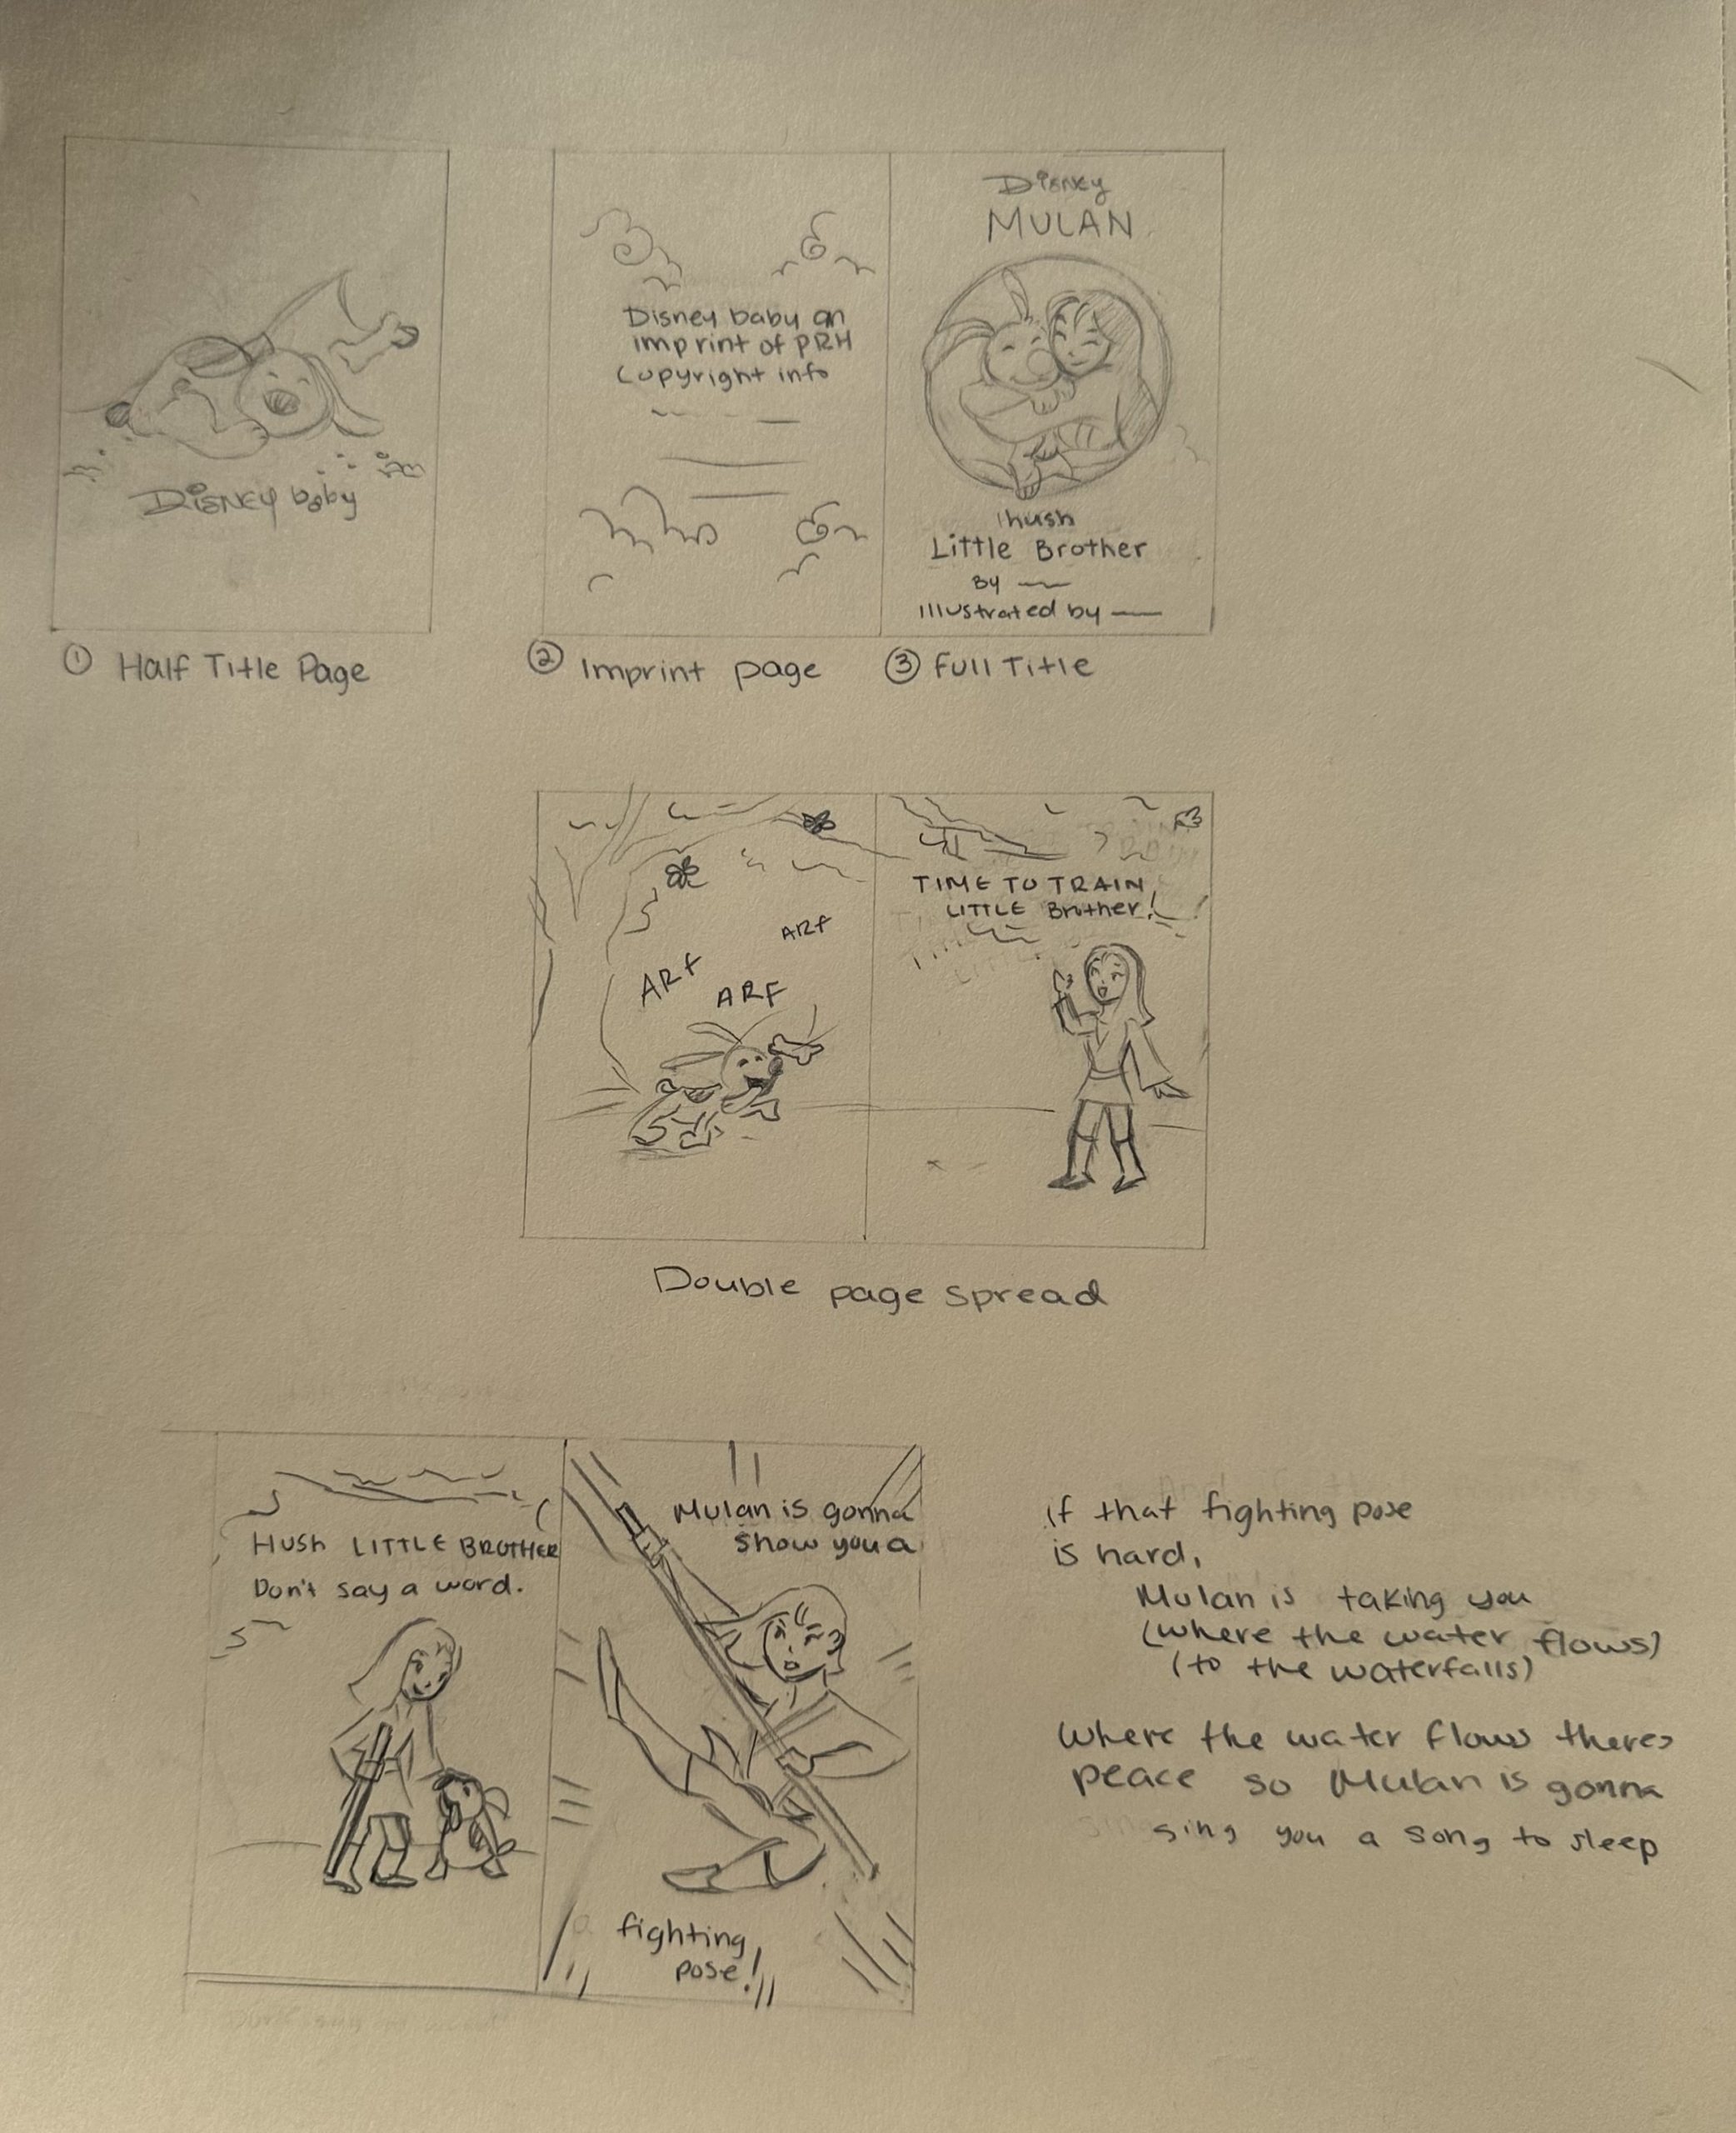 Disney baby
① Half Title Page
Disney baby an
imprint of PRH
Copyright info
② Imprint page
Disney
MULAN
hush
Little Brother
By
Illustrated by
③ Full Title
ARF
ARF
ARF
TIME TO TRAIN
LITTLE Brother!
Double page spread
HUSH LITTLE BROTHER
Don't say a word.
Mulan is gonna
show you a
fighting
pose!
if that fighting pose
is hard,
Mulan is taking you
(where the water flows)
(to the waterfalls)
Where the water flows theres
peace so Mulan is gonna
sing you a song to sleep